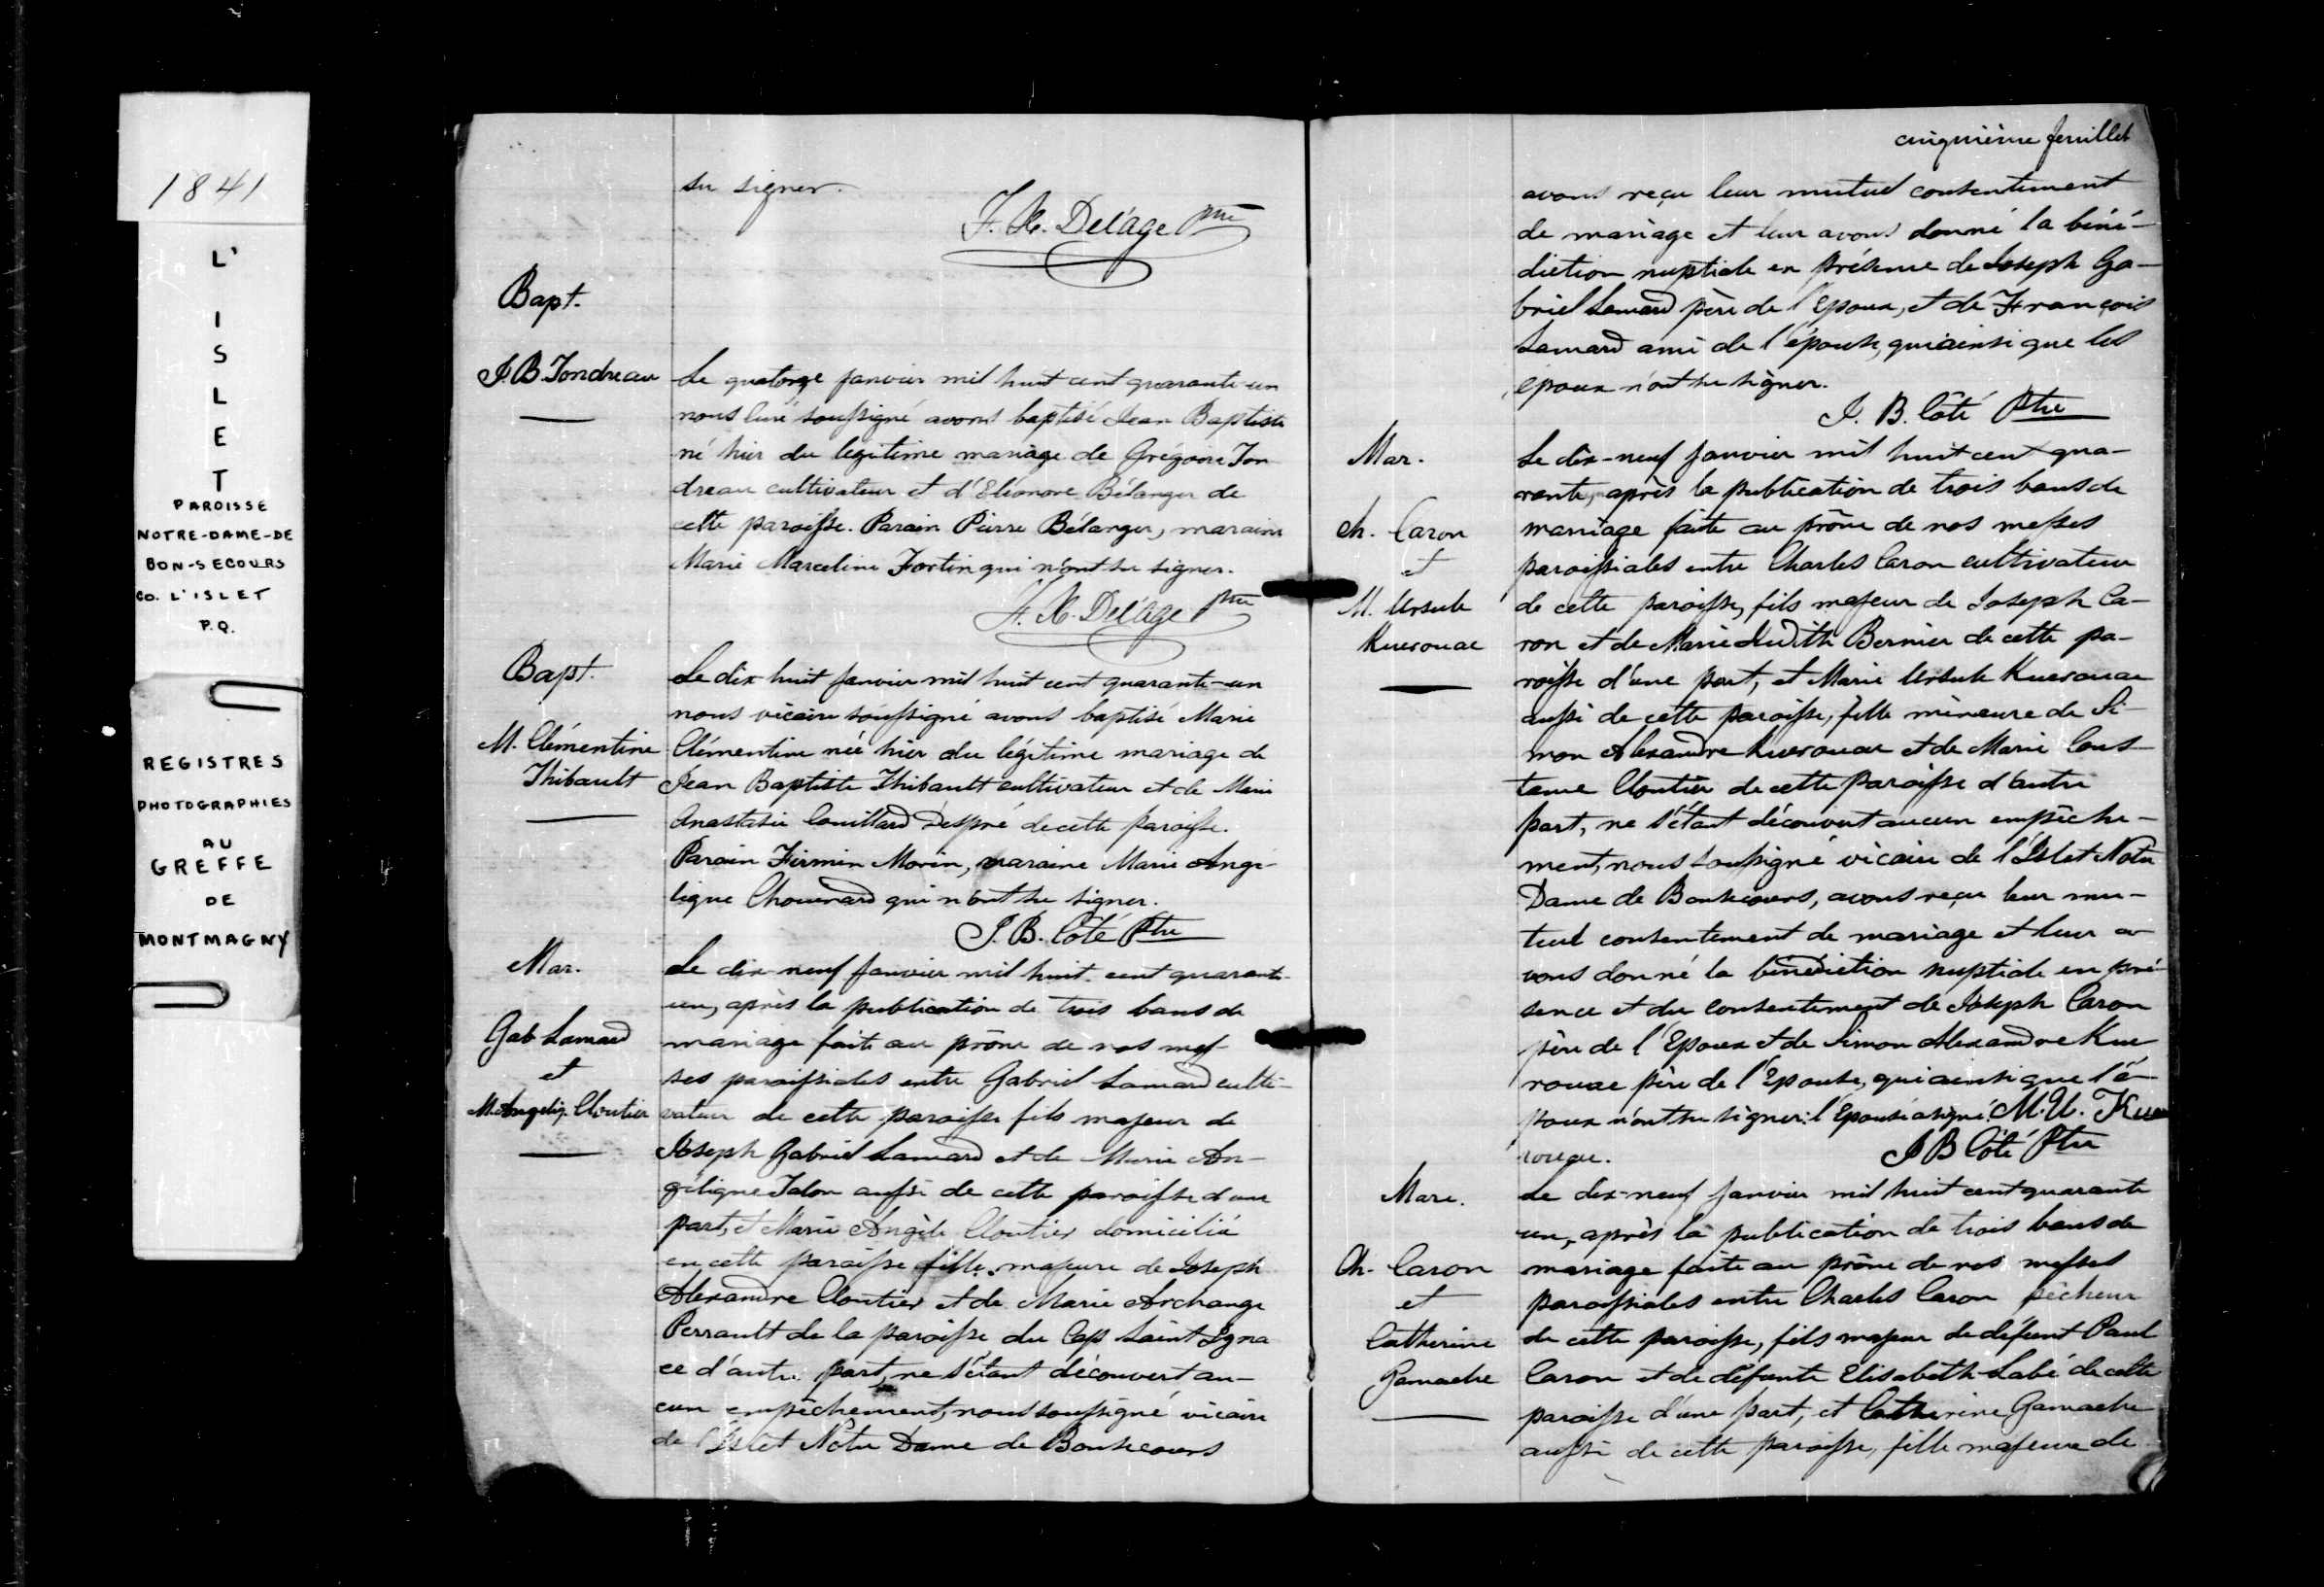 1841
L'
I
S
L
E
T
PAROISSE
NOTRE-DAME-DE
BON-SECOURS
CO. L'ISLET
P.Q.
REGISTRES
PHOTOGRAPHIES
AU
GREFFE
DE
MONTMAGNY
su signer.
F. X. Delâge Ptre
Bapt.
J. B. Tondreau
Le quatorze janvier mil huit cent quarante-un
nous curé soussigné avons baptisé Jean Baptiste
né hier du legitime mariage de Grégoire Ton
dreau cultivateur et d'Eléonore Bélanger de
cette paroisse. Parain Pierre Bélanger, maraine
Marie Marceline Fortin qui n'ont su signer.
F. X. Delâge Ptre
Bapt.
M. Clémentine
Thibault
Le dix huit janvier mil huit cent quarante-un
nous vicaire soussigné avons baptisé Marie
Clémentine née hier du légitime mariage de
Jean Baptiste Thibault cultivateur et de Marie
Anastasie Couillard Després de cette paroisse.
Parain Firmin Morin, maraine Marie Angé-
lique Chouinard qui n'ont su signer.
J. B. Côté Ptre
Mar.
Gab Lamard
et
M. Angeliq. Cloutier
Le dix-neuf janvier mil huit cent quarante-
un, après la publication de trois bans de
mariage faite au prône de nos mes-
ses paroissiales entre Gabriel Lamard culti-
vateur de cette paroisse fils majeur de
Joseph Gabriel Lamard et de Marie An-
gélique Talon aussi de cette paroisse d'une
part, et Marie Angèle Cloutier domiciliée
en cette paroisse fille majeure de Joseph
Alexandre Cloutier et de Marie Archange
Perrault de la paroisse du Cap Saint Igna
ce d'autre part, ne s'étant découvert au-
cun empêchement, nous soussigné vicaire
de l'Islet Notre Dame de Bonsecours
cinquième feuillet
avons reçu leur mutuel consentement
de mariage et leur avons donné la béné-
diction nuptiale en présence de Joseph Ga-
briel Lamard père de l'Epoux, et de François
Lamard ami de l'épouse, qui ainsi que les
époux n'ont su signer.
J. B. Côté Ptre
Mar.
Ch. Caron
et
M. Ursule
Kuerouac
Le dix-neuf janvier mil huit cent qua-
rante, après la publication de trois bans de
mariage faite au prône de nos messes
paroissiales entre Charles Caron cultivateur
de cette paroisse, fils majeur de Joseph Ca-
ron et de Marie Judith Bernier de cette pa-
roisse d'une part, et Marie Ursule Kuerouac
aussi de cette paroisse, fille mineure de Si-
mon Alexandre Kuerouac et de Marie Cons-
tance Cloutier de cette paroisse d'autre
part, ne s'étant découvert aucun empêche-
ment, nous soussigné vicaire de l'Islet Notre
Dame de Bonsecours, avons reçu leur mu-
tuel consentement de mariage et leur a-
vons donné la bénédiction nuptiale en pré-
sence et du consentement de Joseph Caron
père de l'Epoux et de Simon Alexandre Kue
rouac père de l'Epouse, qui ainsi que l'é-
poux n'ont su signer: l'Epouse a signé. M. U. Kue
rouac.
J B Côté Ptre
Mare.
Ch. Caron
et
Catherine
Gamache
Le dix-neuf janvier mil huit cent quarante
un, après la publication de trois bans de
mariage faite au prône de nos messes
paroissiales entre Charles Caron pêcheur
de cette paroisse, fils majeur de défunt Paul
Caron et de défunte Elisabeth Labé de cette
paroisse d'une part, et Catherine Gamache
aussi de cette paroisse, fille majeure de